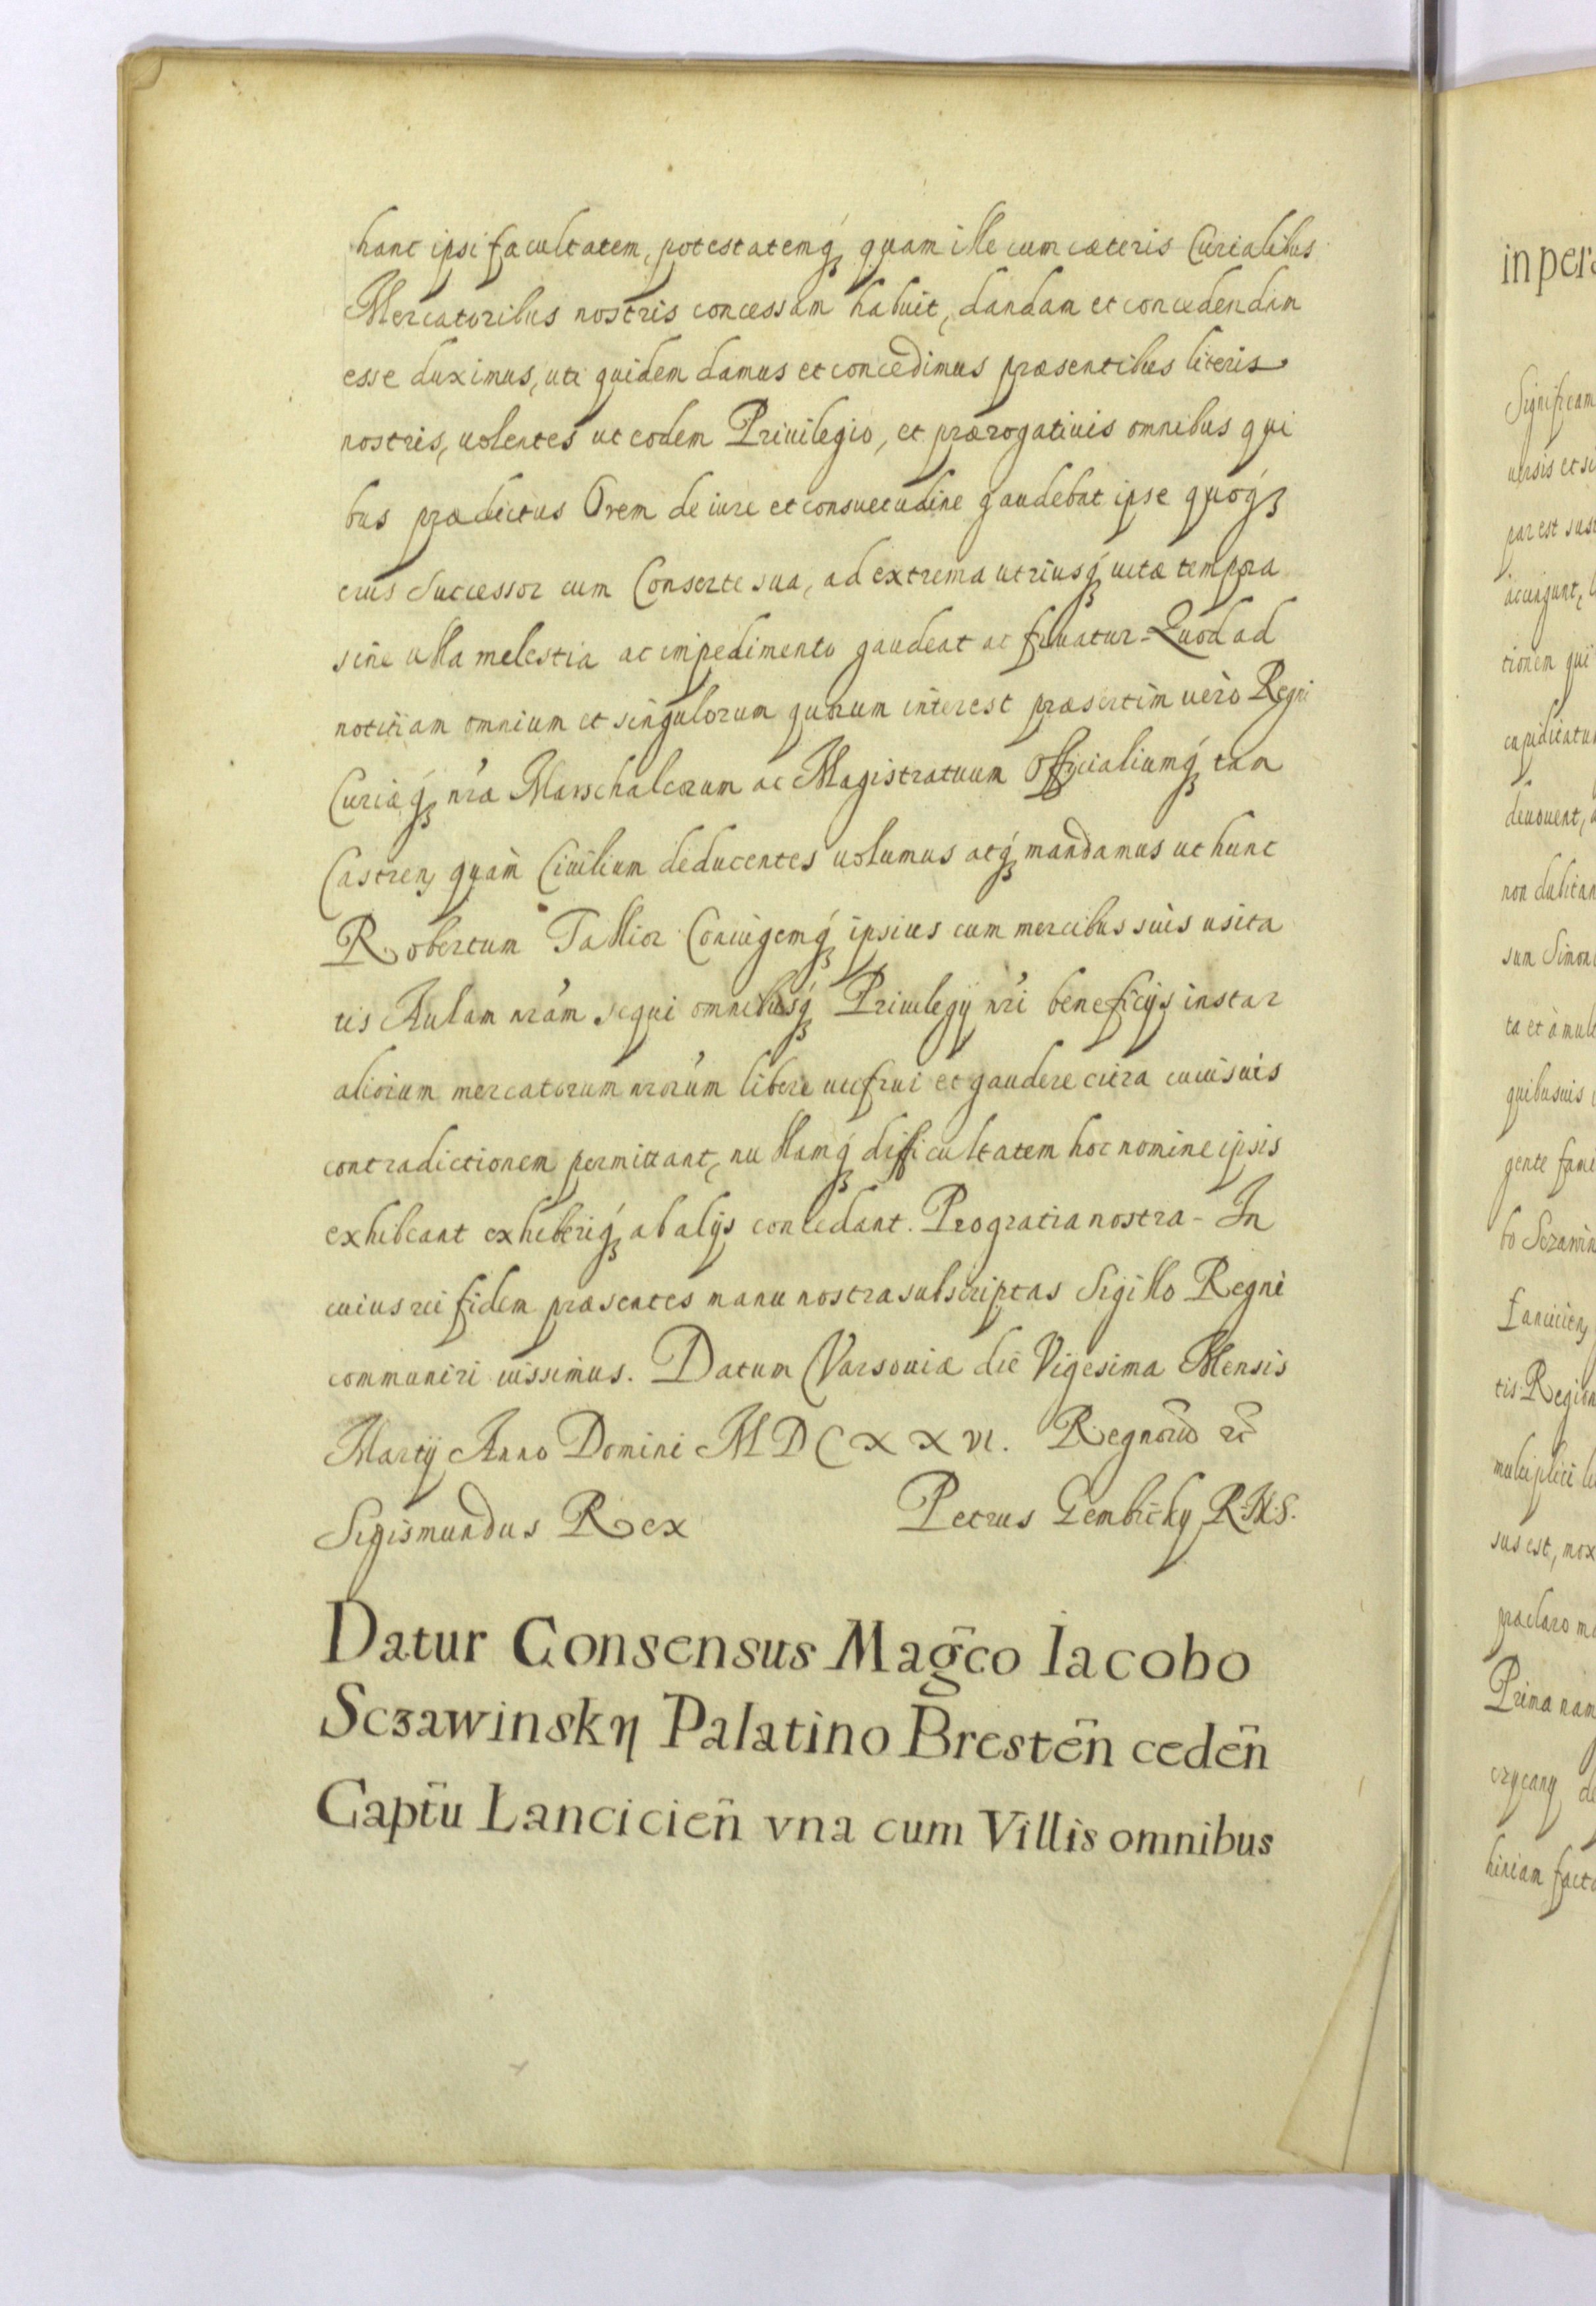 hanc ipsi facultatem, potestatemq́ꝫ quam ille cum cæteris Curialibus
Mercatoribus nostris concessam habuit, dandam et concedendam
esse duximus, uti quidem damus et concedimus præsentibus literis
nostris, uolentes ut eodem Priuilegio, et prærogatiuis omnibus qui
bus prædictus Orem de iure et consuetudine gaudebat ipse quoq́ꝫ
eius Successor cum Consorte sua, ad extrema utriusq́ꝫ uitæ tempora
sine ulla molestia ac impedimento gaudeat ac fruatur - Quod ad
notitiam omnium et singulorum quorum interest præsertim uerò Regni
Curiæq́ꝫ nr̃æ Marschalcorum ac Magistratuum Officialiumq́ꝫ tam
Castren, quàm Ciuilium deducentes uolumus atq́ꝫ mandamus ut hunc
Robertum Tallior Coniugemq́ꝫ ipsius cum mercibus suis usita
tis Aulam nr̃am sequi omnibusq́ꝫ Priuilegij nr̃i beneficijs instar
aliorum mercatorum nr̃orum libere uti frui et gaudere citra cuiusuis
contradictionem permittant, nullamq́ꝫ difficultatem hoc nomine ipsis
exhibeant exhiberiq́ꝫ ab alijs concedant. Pro gratia nostra - In
cuius rei fidem præsentes manu nostra subscriptas Sigillo Regni
communiri iussimus. Datum Varsouiæ die Vigesima Mensis
Martij Anno Domini M D C X X VI. Regnorũ &c̃
Sigismundus Rex Petrus Gembicky R. N. S.
Datur Consensus Mag̃co Iacobo
Sczawinsky Palatino Bresteñ cedeñ
Capt̃u Lancicieñ vna cum Villis omnibus
in per
Significam
par est
tionem qui
deuouent,
non dubitan
sum Simon
ta et à mul
quibusuis
gente fami
bo Sczawin
Lanciciẽn
tis Region
multiplici
sus est, mox
præclaro
Prima nam